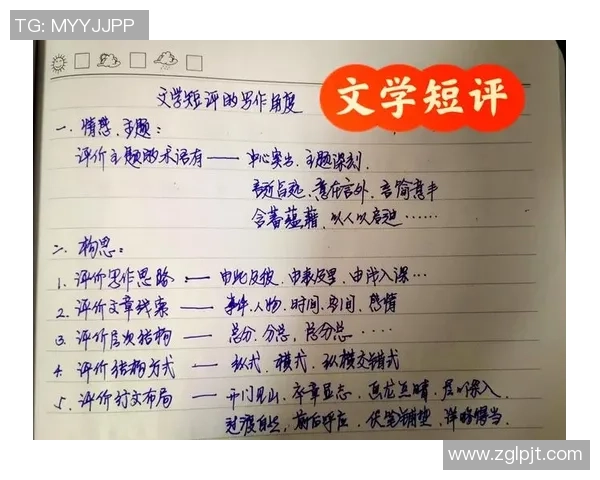 TG: MYYJJPP
文学短评
文学短评的写作角度
一、情感、主题:
评价主题的术语有——中心突出、主题深刻、
言近旨远、意在言外、言简意丰
含蓄蕴藉、以人以启迪……
二、构思:
1、评价写作思路——由此及彼、由表及里、由浅入深…
2、评价文章线索——事件、人物、时间、空间、感情
3、评价层次结构——总分、分总、总分总……
4、评价结构方式——纵式、横式、纵横交错式
5、评价行文布局——开门见山、卒章显志、画龙点睛、层层深入
过渡自然、前后呼应、伏笔铺垫、详略得当.
www.zglpjt.com